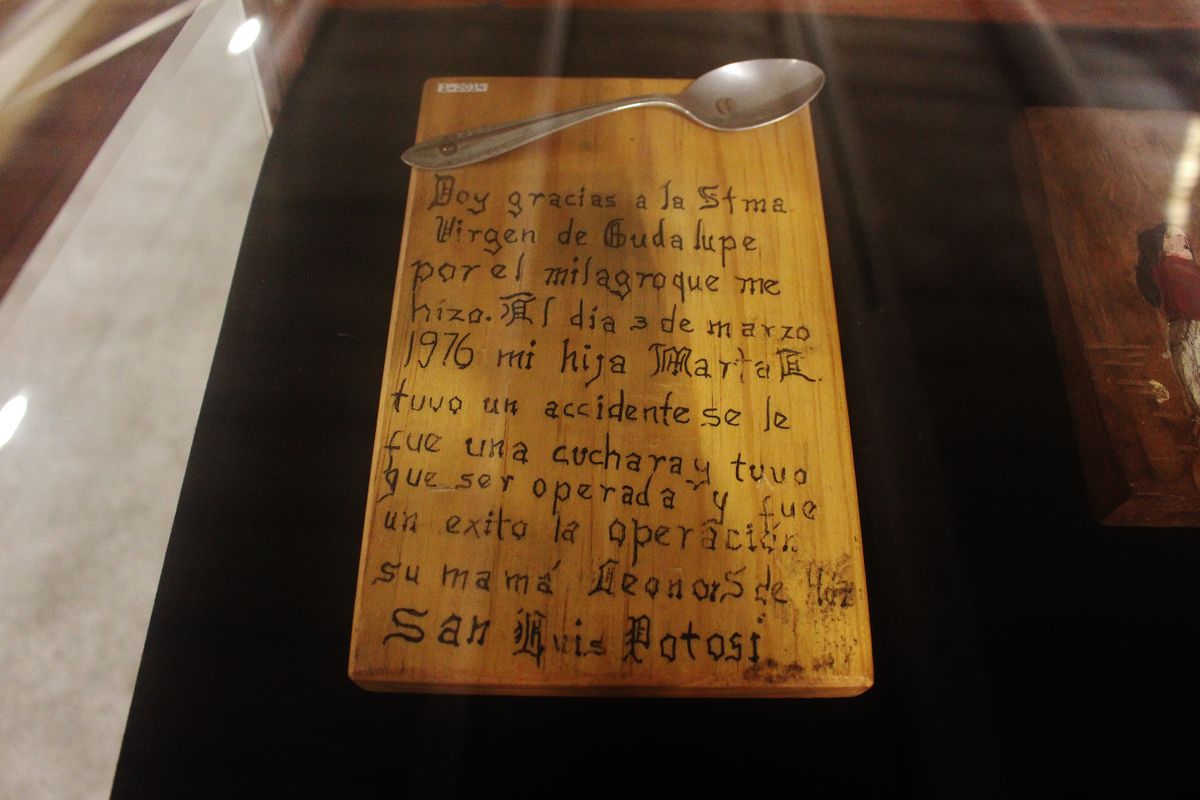 1-2014
Doy gracias a la Stma
Virgen de Gudalupe
por el milagro que me
hizo. El dia 3 de marzo
1976 mi hija Marta E.
tuvo un accidente se le
fue una cuchara y tuvo
que ser operada y fue
un exito la operación
su mamá Leonor S de
San Luis Potosi